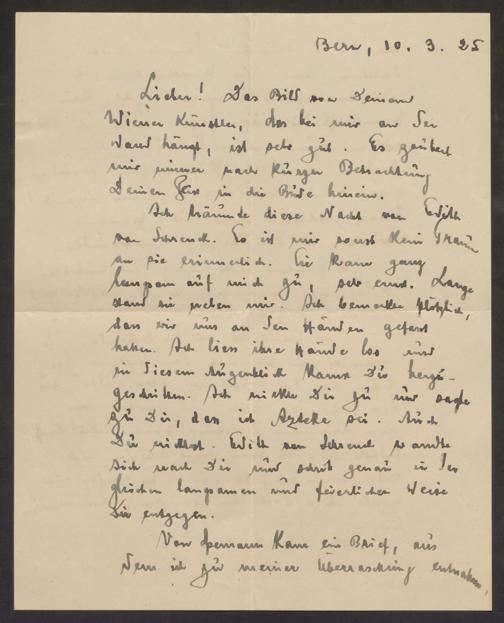 Bern, 10. 3. 25
Lieber! Das Bild von Deinem
Wiener Künstler, das bei mir an der
Wand hängt, ist sehr gut. Es zaubert
mir immer nach kurzer Betrachtung
Deinen Geist in die Bude hinein.
Ich träumte diese Nacht von Edith
von Schrenck. Es ist mir sonst kein Traum
an sie erinnerlich. Sie kam ganz
langsam auf mich zu, sehr ernst. Lange
stand sie neben mir. Ich bemerkte plötzlich,
dass wir uns an den Händen gefasst
hatten. Ich liess ihre Hände los und
in diesem Augenblick kamst Du herzu-
geschritten. Ich nickte Dir zu und sagte
zu Dir, dass ich Azteke sei. Auch
Du nicktest. Edith von Schrenck wandte
sich nach Dir und schritt genau in der
gleichen langsamen und feierlichen Weise
Dir entgegen.
Von Spemann kam ein Brief, aus
dem ich zu meiner Überraschung entnahm,